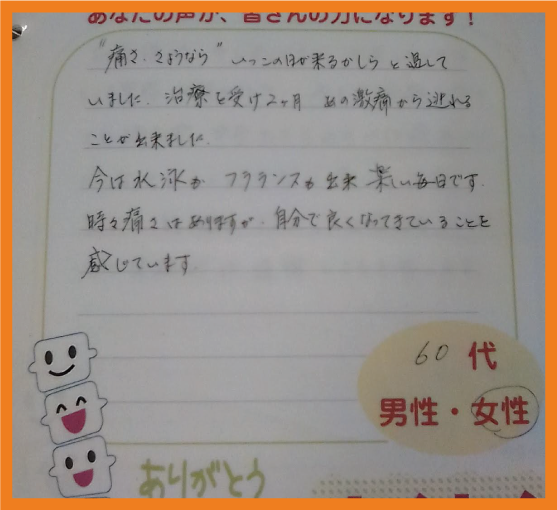 あなたの声が、皆さんの力になります！
"痛さ、さようなら" いつこの日が来るかしら と過して
いました。治療を受け2ヶ月 あの激痛から逃れる
ことが出来ました。
今は水泳も フラダンスも 出来 楽しい毎日です。
時々痛さはありますが、自分で良くなってきていることを
感じています。
60代
男性・女性
ありがとう